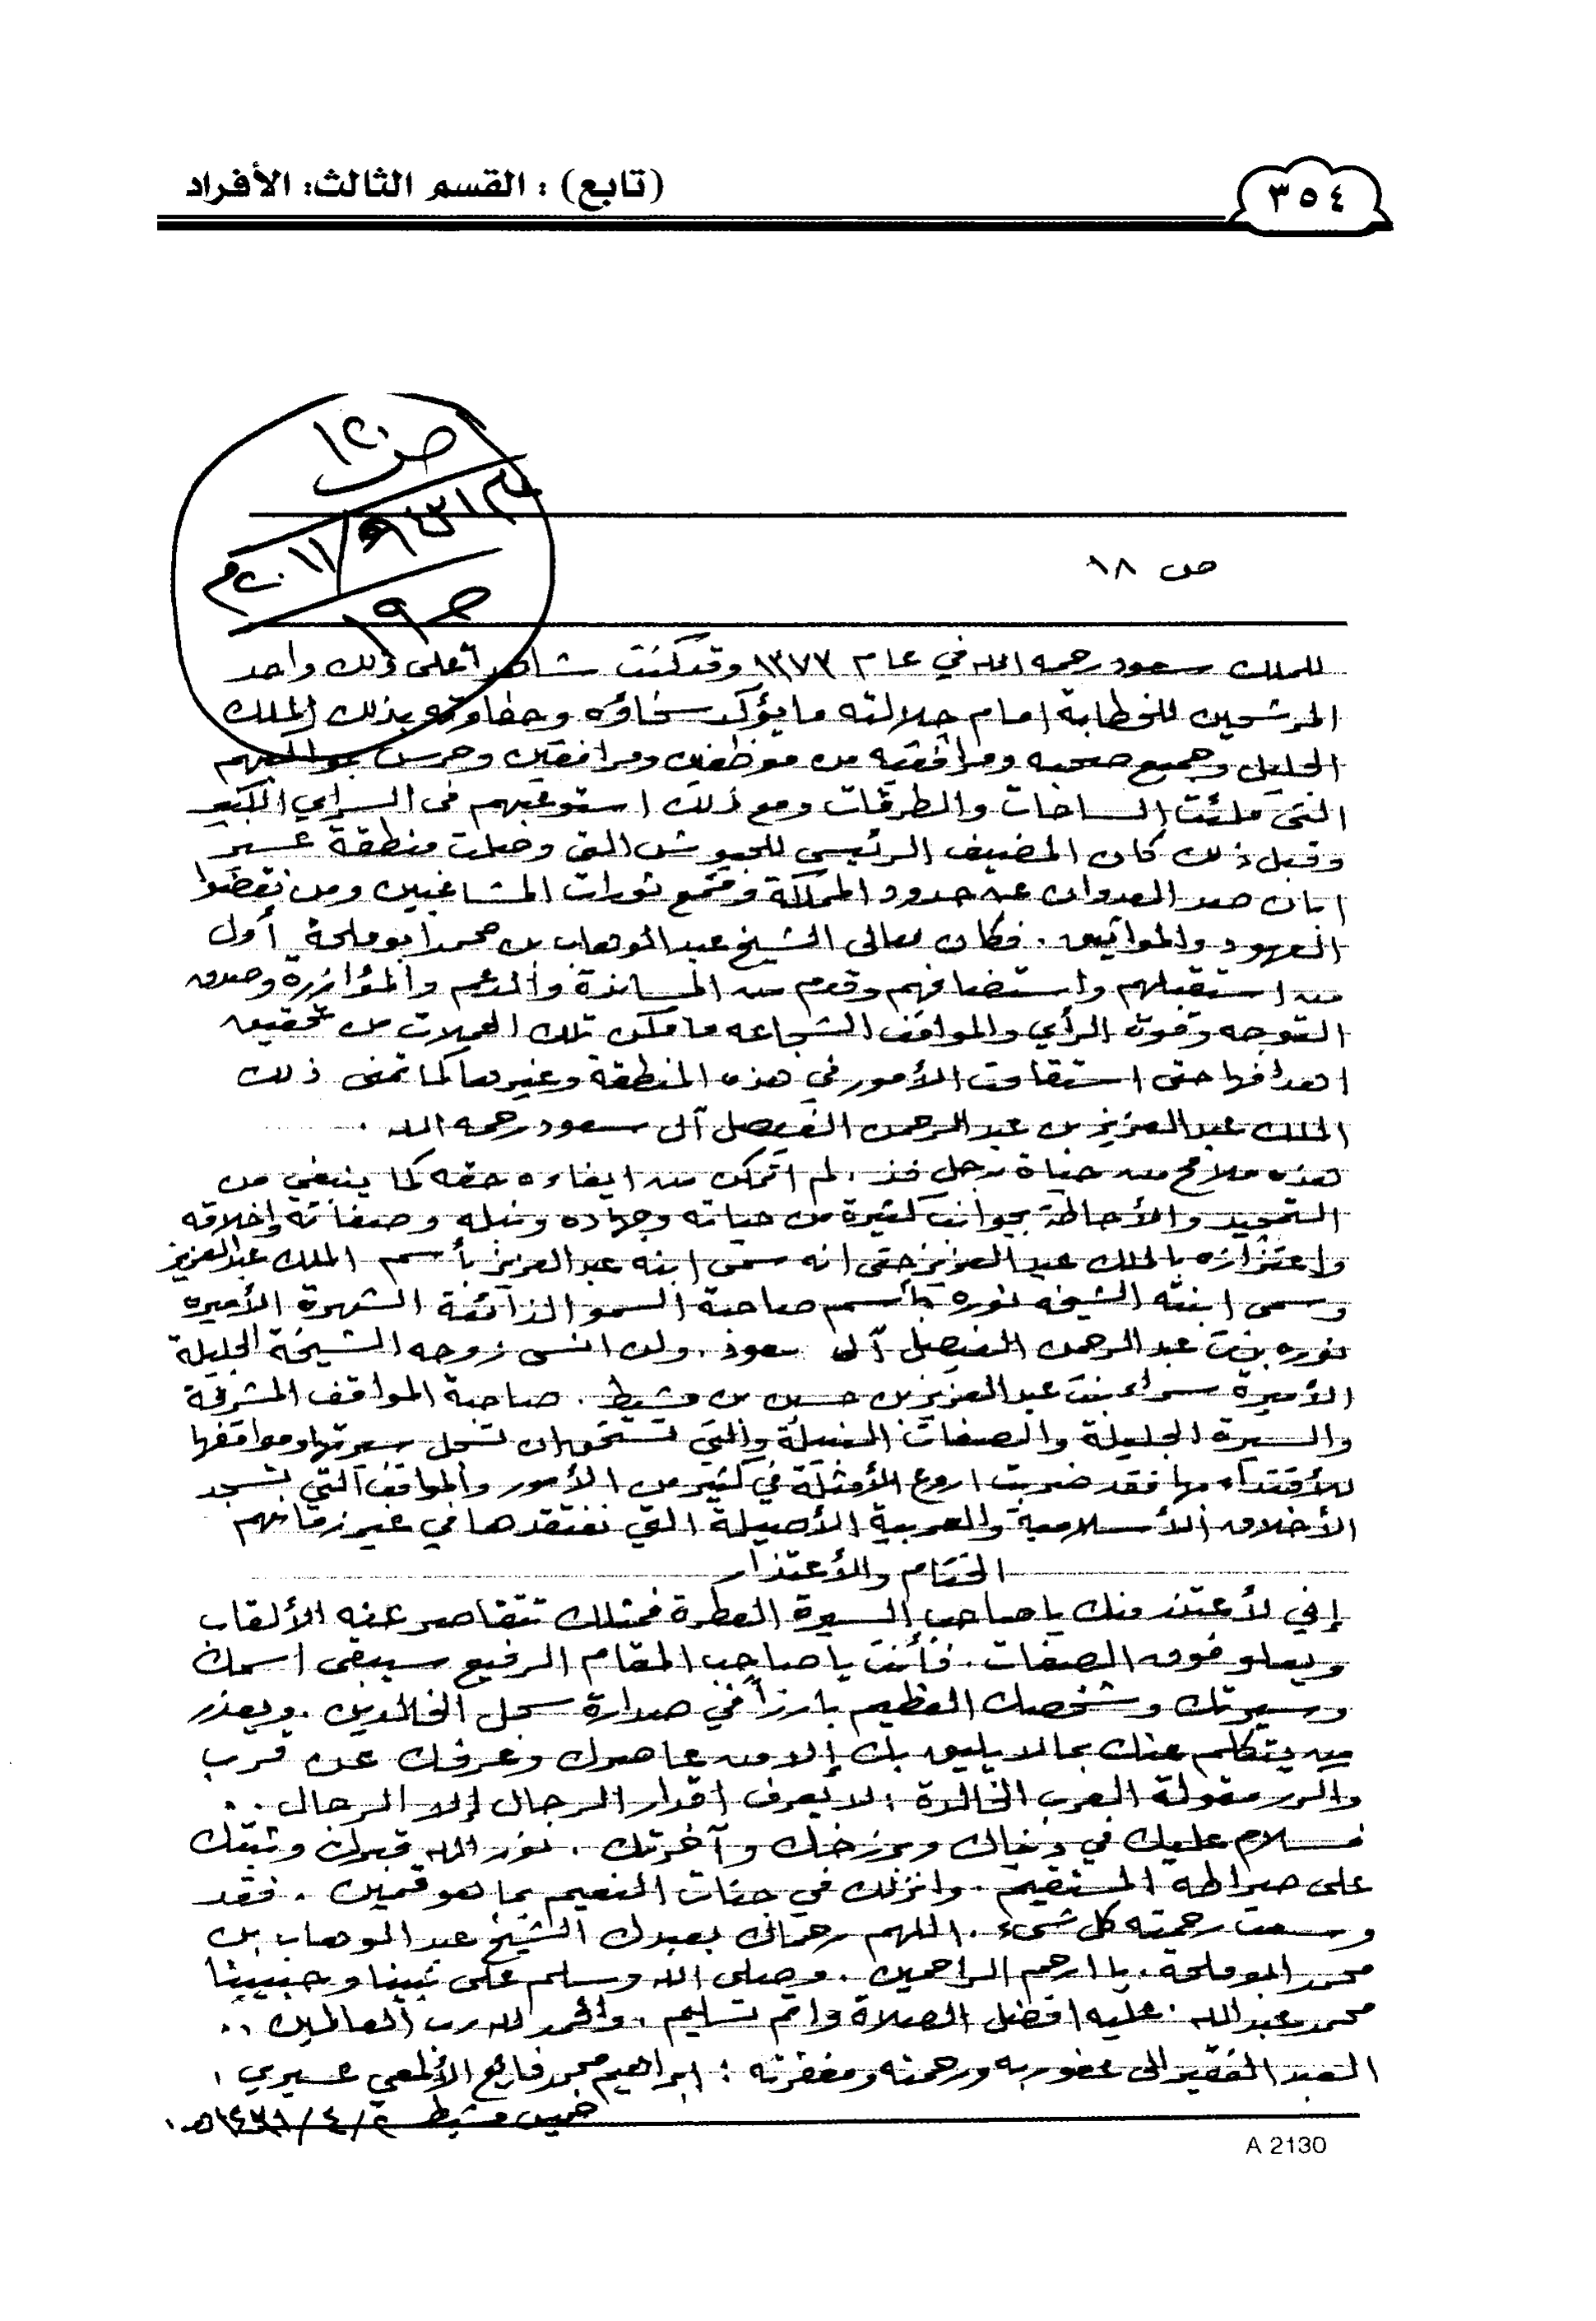 (تابع) : القسم الثالث: الأفراد
٣٥٤
ص ١٢٠
١٤٣١هـ / ٢٠١١م
ص ١٩
ص ١٨
للملك سعود رحمه الله في عام ١٣٧٣ وقد كنت شاهداً على ذلك واحد
المرشحين للخطابة إمام جلالته ما يؤكد سخاؤه وحفاوته بذلك الملك
الجليل وجميع صحبه ومرافقيه من موظفين ومرافقين وحرس بمواكبهم
التي ملئت الساحات والطرقات ومع ذلك استوعبهم في السراي الكبير
وقبل ذلك كان المضيف الرئيسي للجيوش التي وصلت منطقة عسير
ابان صد العدوان عن حدود المملكة وقمع ثورات المشاغبين ومن نقضوا
العهود والمواثيق . فكان معالي الشيخ عبدالوهاب بن محمد ابوملحة أول
من استقبلهم واستضافهم وقدم من المساندة والدعم والمؤازرة وصدق
التوجه وقوة الرأي والمواقف الشجاعه ما مكن تلك الحملات من تحقيق
اهدافها حتى استقامت الأمور في هذه المنطقة وغيرها كما تمنى ذلك
الملك عبدالعزيز بن عبدالرحمن الفيصل آل سعود رحمه الله .
هذه ملامح من حياة رجل فذ . لم اتمكن من ايفاءه حقه كما ينبغي من
التمجيد والأحاطة بجوانب كثيرة من حياته وجهاده ونبله وصفاته وإخلاقه
وإعتزازه بالملك عبدالعزيز حتى انه سمى ابنه عبدالعزيز بأسم الملك عبدالعزيز
وسمى ابنته الشيخه نوره بأسم صاحبة السمو الذائعة الشهرة الأميره
نوره بنت عبدالرحمن الفيصل آل سعود . ولن انسى زوجه الشيخة الجليلة
الأميرة سراء بنت عبدالعزيز بن حسين بن مشيط . صاحبة المواقف المشرفة
والسيرة الجليلة والصفات النبيلة والتي تستحق ان تسجل سيرتها ومواقفها
للأقتداء بها فقد ضربت اروع الأمثلة في كثير من الأمور والمواقف التي تجسد
الأخلاق الأسلامية والعربية الأصيلة التي نفتقدها في غير زمانهم
الختام والأعتذار
إني لأعتذر منك ياصاحب السيرة العطرة فمثلك تتقاصر عنه الألقاب
ويعلو فوق الصفات . فأنت ياصاحب المقام الرفيع سيبقى اسمك
وسيرتك وشخصك العظيم بارزاً في صدارة سجل الخالدين . ويعذر
من يتكلم عنك بما لا يليق بك إلا من عاصرك وعرفك عن قرب
والرد مقولة العرب الخالدة : لا يعرف اقدار الرجال إلا الرجال ..
فسلام عليك في دنياك وبرزخك وآخرتك . نور الله قبرك وثبتك
على صراطه المستقيم . وانزلك في جنات النعيم بما هو قمين . فقد
وسعت رحمته كل شيء . اللهم رحماك بعبدك الشيخ عبدالوهاب بن
محمد ابوملحة . يا ارحم الراحمين . وصلى الله وسلم على نبينا وحبيبنا
محمد بن عبدالله . عليه افضل الصلاة واتم تسليم . والحمد لله رب العالمين ..
العبد الفقير الى عفو ربه ورحمته ومغفرته : ابراهيم محمد فايع الألمعي عسيري .
خميس مشيط ٢/ ٤/ ١٤٣١هـ .
A 2130